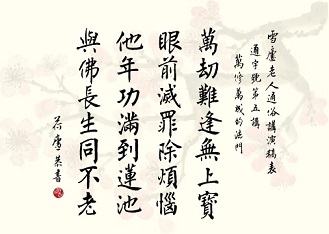 雪廬老人通俗講演稿表
通字號第五講
萬修萬成的法門
萬劫難逢無上寶
眼前滅罪除煩惱
他年功滿到蓮池
與佛長生同不老